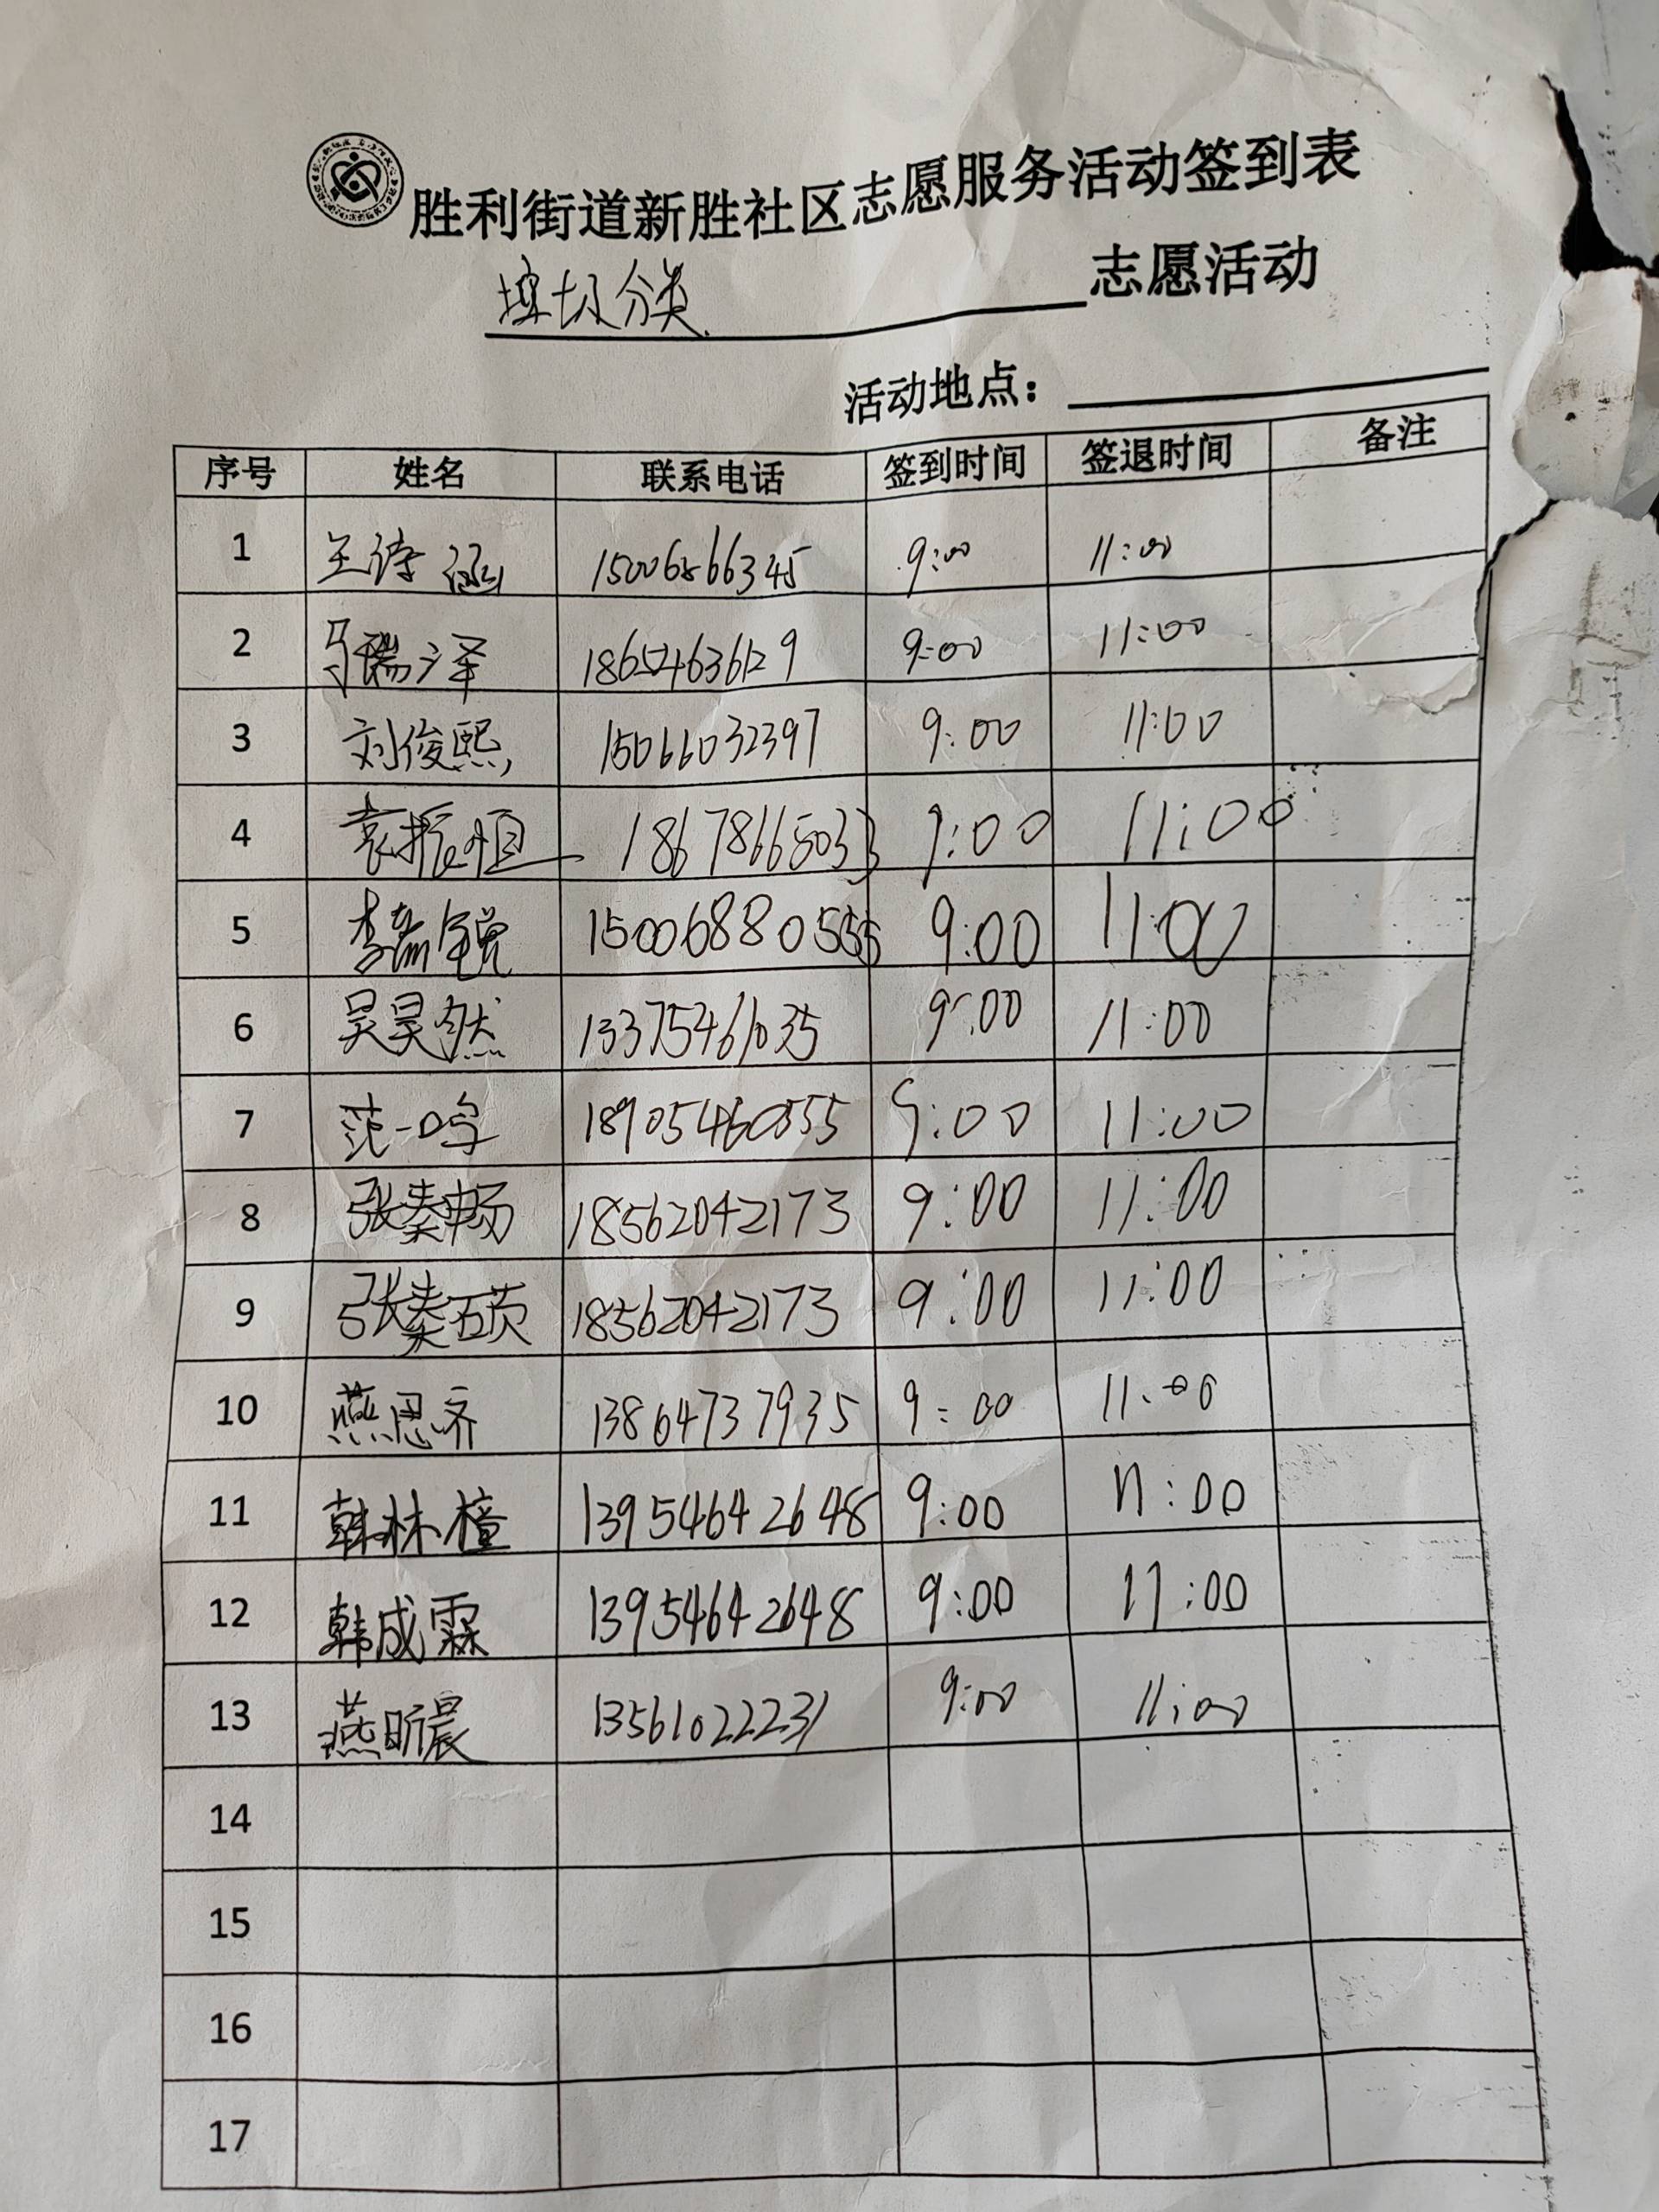 胜利街道新胜社区志愿服务活动签到表
垃圾分类 志愿活动
活动地点：
序号 姓名 联系电话 签到时间 签退时间 备注
1 王诗涵 15006866345 9:00 11:00
2 马瑞泽 18654636129 9:00 11:00
3 刘俊熙 15066032397 9:00 11:00
4 袁振恒 18678665033 9:00 11:00
5 李瑞锐 15006880555 9:00 11:00
6 吴昊燃 13375461035 9:00 11:00
7 范一鸣 18905460555 9:00 11:00
8 张秦畅 18562042173 9:00 11:00
9 张秦硕 18562042173 9:00 11:00
10 燕思齐 13864737935 9:00 11:00
11 韩林橦 13954642648 9:00 11:00
12 韩成霖 13954642648 9:00 11:00
13 燕昕晨 13561022231 9:00 11:00
14
15
16
17